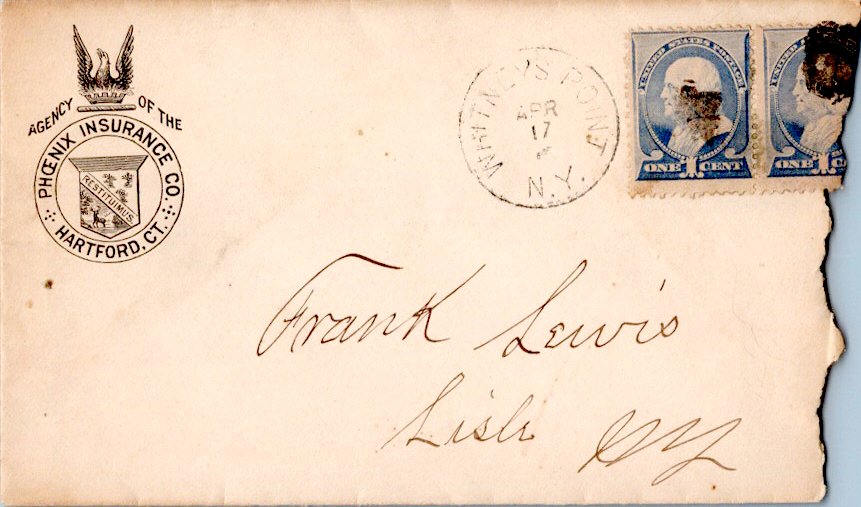 AGENCY OF THE
PHŒNIX INSURANCE CO.
HARTFORD, CT.
RESTITUIMUS
WHITNEYS POINT
APR
17
N.Y.
UNITED STATES POSTAGE
ONE 1 CENT
ONE 1
Frank Lewis
Lisle NY